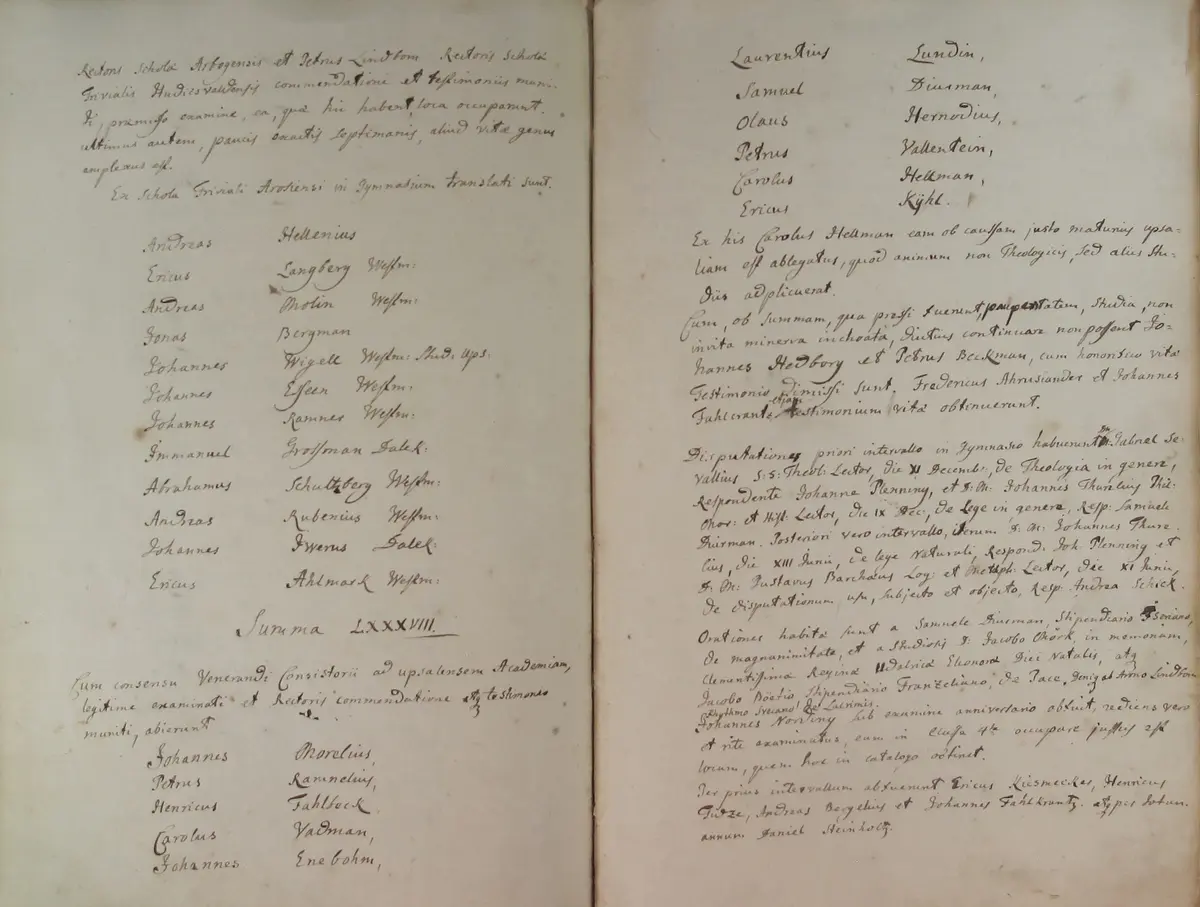 Rectoris Scholæ Arbogensis et Petrus Lindbom Rectoris Scholæ
Trivialis Hudicsvaldensis commendatione et testimoniis muni-
ti, præmisso examine, ea, quæ hic habent, loca occuparunt.
ultimus autem, paucis exactis septimanis, aliud vitæ genus
amplexus est.
Ex Schola Triviali Arosiensi in Gymnasium translati sunt.
Andreas Hellenius
Ericus Langberg Westm:
Andreas Molin Westm:
Jonas Bergman
Johannes Wigell Westm: Stud: Ups:
Johannes Esseen Westm:
Johannes Ramner Westm:
Immanuel Grossman Dalek:
Abrahamus Schultzberg Westm:
Andreas Rubenius Westm:
Johannes Iwerus Dalek:
Ericus Ahlmark Westm:
Summa LXXXVIII.
Cum consensu Venerandi Consistorii ad upsalensem Academiam,
legitime examinati et Rectoris commendatione atq testimonio
muniti, abierunt
Johannes Morelius,
Petrus Ramnelius,
Henricus Fahlbock.
Carolus Vadman,
Johannes Enebohm,
Laurentius Lundin,
Samuel Diurman,
Olaus Hernodius,
Petrus Vallentein,
Carolus Hellman,
Ericus Kijhl.
Ex his Carolus Hellman eam ob caussam justo maturius upsa-
liam est ablegatus, quod animum non Theologicis, sed aliis Stu-
diis adplicuerat.
Cum, ob summam, qua pressi fuerunt, paupertatem, studia, non
invita minerva inchoata, diutius continuare non possent Jo-
hannes Hedborg et Petrus Beckman, cum honorifico vitæ
Testimonio dimissi sunt. Fredericus Ahrusiander et Johannes
Fahlcrantz etjam testimonium vitæ obtinuerunt.
Disputationes priori intervallo in Gymnasio habuerunt Gabriel Se-
vallius S:S: Theol: Lector, die XI Decembr, de Theologia in genere,
Respondente Johanne Plenning, et D: M: Johannes Thurelius Phil:
Mor: et Hist: Lector, die IX Dec, de Lege in genere, Resp: Samuele
Diurman. Posteriori vero intervallo, iterum D: M: Johannes Thure-
lius, die XIII Junii, de lege naturali, Respond: Joh: Plenning et
D: M: Gustavus Barchæus Log: et Metaph: Lector, die XI Junii,
de disputationum usu, subjecto et objecto, Resp: Andrea Schick.
Orationes habitæ sunt a Samuele Diurman, Stipendiario
de magnanimitate, et a studiosis D: Jacobo Mörk, in memoriam,
Clementissimæ Reginæ Udalricæ Eleonoræ Diei Natalis, atq
Jacobo Boëtio Stipendiario Franzeliano, de Pace, deniq ab Arno Lindbom
Rhythmo Svecano de Lacrimis.
Johannes Nording sub examine anniversario abfuit, rediens vero
et rite examinatus, eum in Classe 4ta occupare jussus est
locum, quem hoc in catalogo obtinet.
Per prius intervallum abfuerunt Ericus Kiesmecker, Henricus
Andreas Bergelius et Johannes Fahlkrantz. atq per totum
annum Daniel Steinholtz.